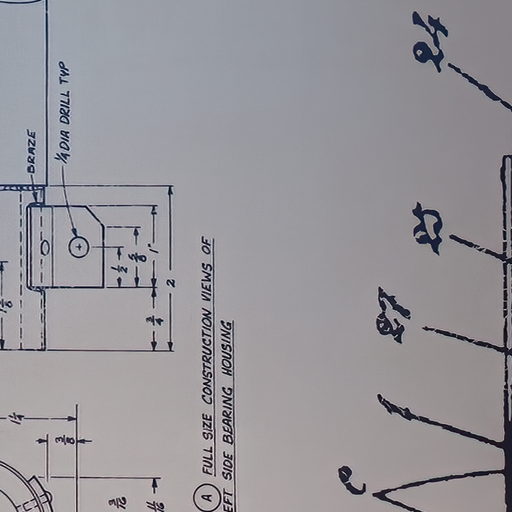 BRAZE
¼ DIA DRILL TYP
½
⅝
1"
¾
2
1⅛
1¼
⅜
3/16
A FULL SIZE CONSTRUCTION VIEWS OF
EFT SIDE BEARING HOUSING
24
25
27